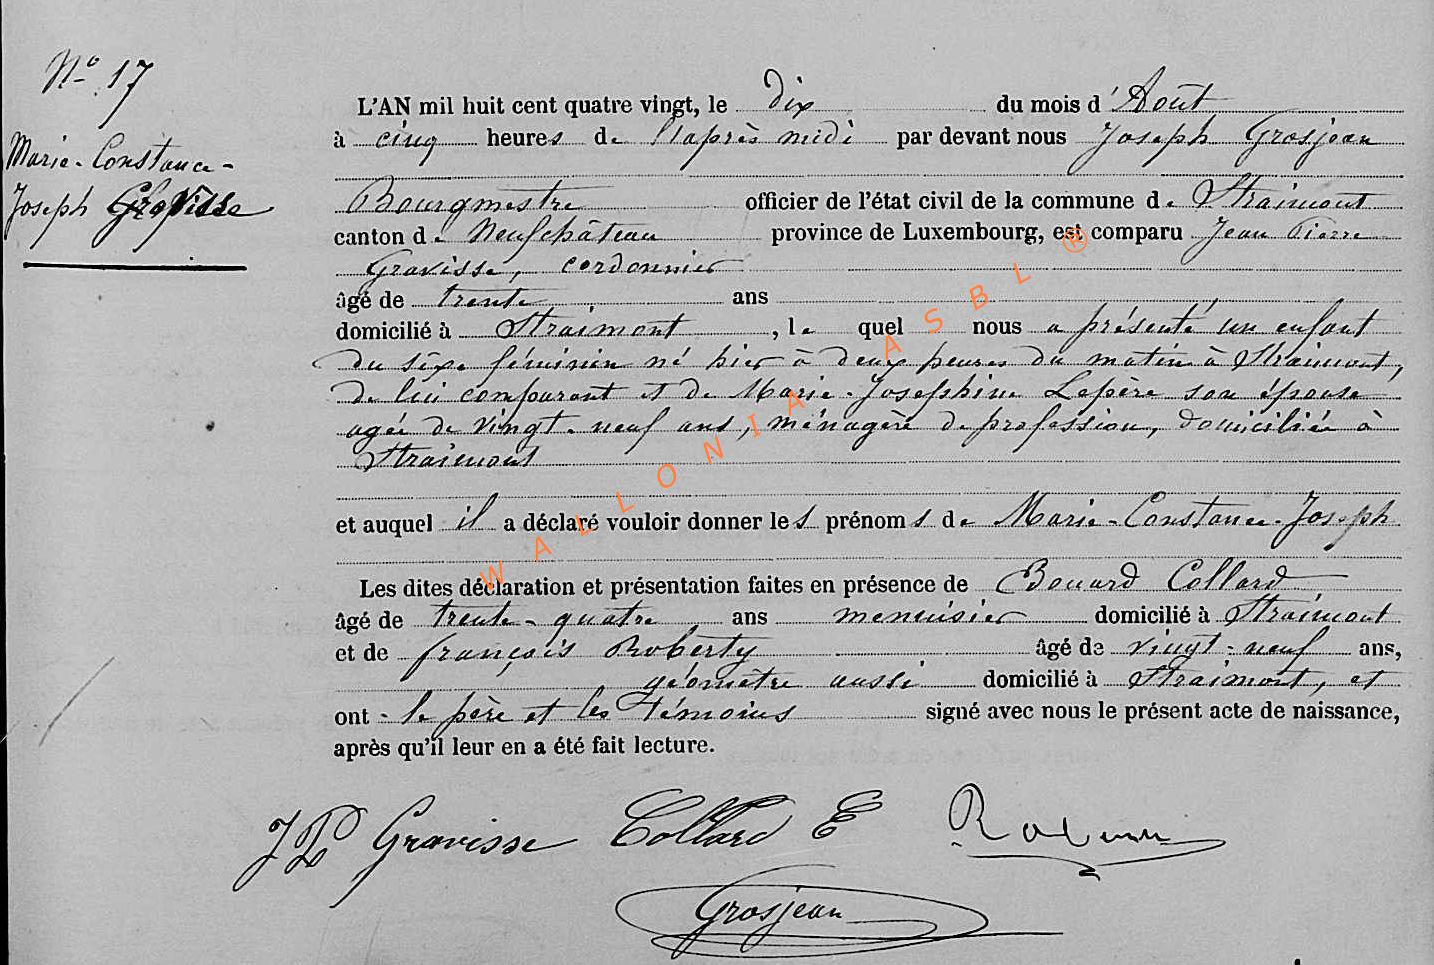 N° 17
Marie-Constance-
Joseph Gravisse
L'AN mil huit cent quatre vingt, le dix du mois d'Août
à cinq heures de l'après midi par devant nous Joseph Grosjean
Bourgmestre officier de l'état civil de la commune de Straimont
canton de Neufchâteau province de Luxembourg, est comparu Jean Pierre
Gravisse, cordonnier
âgé de trente ans
domicilié à Straimont, le quel nous a présenté un enfant
du sexe féminin né hier à deux heures du matin à Straimont,
de lui comparant et de Marie-Josephine Lepère son épouse
agée de vingt-neuf ans, ménagère de profession, domiciliée à
Straimont
et auquel il a déclaré vouloir donner les prénoms de Marie-Constance-Joseph
Les dites déclaration et présentation faites en présence de Edouard Collard
âgé de trente-quatre ans menuisier domicilié à Straimont
et de françois Roberty âgé de vingt-neuf ans,
géomètre aussi domicilié à Straimont, et
ont - le père et les témoins signé avec nous le présent acte de naissance,
après qu'il leur en a été fait lecture.
JP Gravisse Collard E
Grosjean
WALLONIA ASBL ®